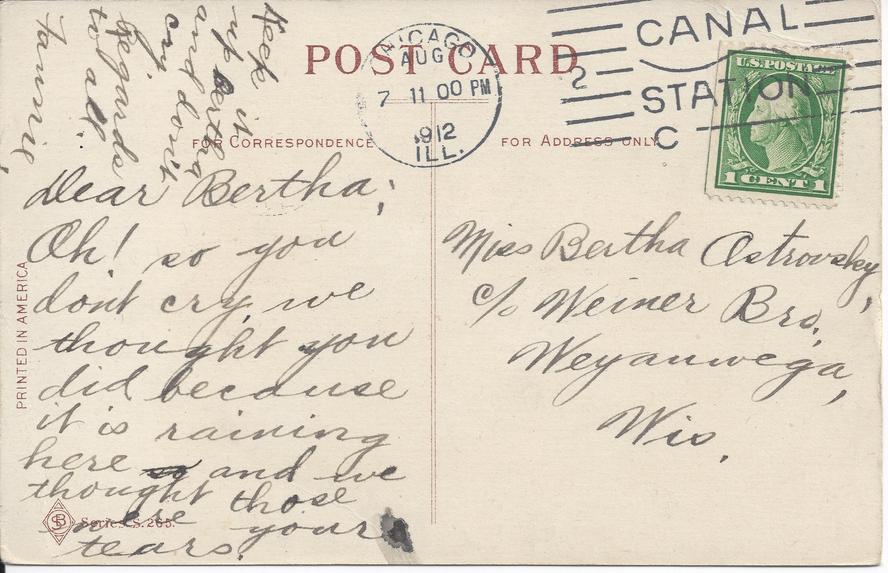 POST CARD
CHICAGO
AUG
7 11 00 PM
1912
ILL.
CANAL
STATION
C
U.S. POSTAGE
1 CENT 1
FOR CORRESPONDENCE
FOR ADDRESS ONLY
PRINTED IN AMERICA
Dear Bertha;
Oh! so you
dont cry, we
thought you
did because
it is raining
here and we
thought those
were your
tears.
Keep it
up Bertha
and don't
cry
Regards
to all
Fannie
Miss Bertha Ostrovsky,
c/o Weiner Bro,
Weyauwega,
Wis,
SB
Series S. 265.